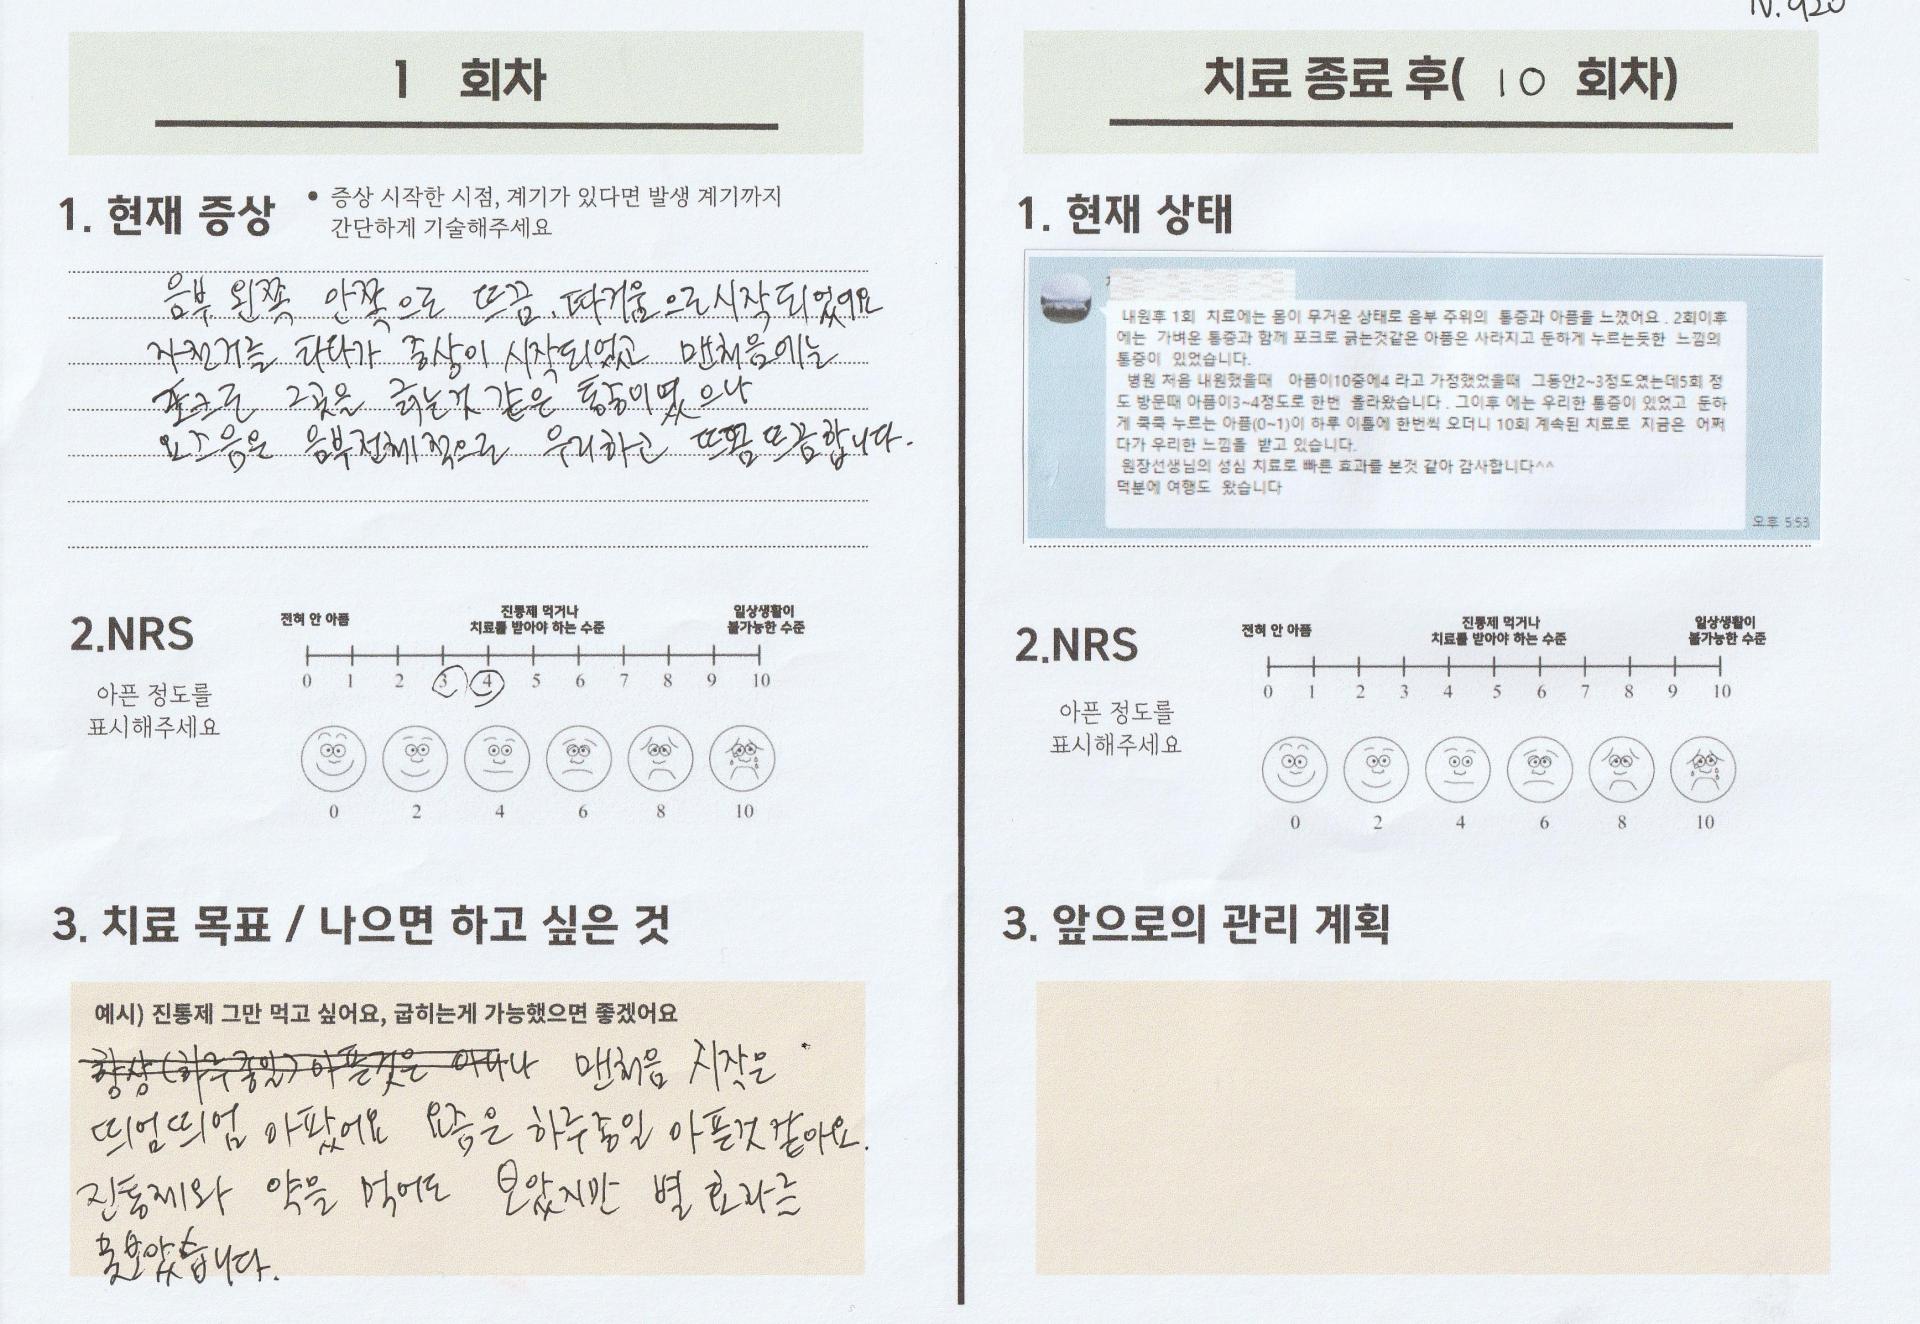 N.920
1 회차
1. 현재 증상
• 증상 시작한 시점, 계기가 있다면 발생 계기까지
간단하게 기술해주세요
음부 왼쪽 안쪽으로 뜨끔, 따거움으로 시작되었어요
자전거를 타다가 증상이 시작되었고 맨처음에는
포크로 그곳을 긁는것 같은 통증이였으나
요즈음은 음부전체적으로 우리하고 뜨끔합니다.
2.NRS
아픈 정도를
표시해주세요
전혀 안 아픔
진통제 먹거나
치료를 받아야 하는 수준
일상생활이
불가능한 수준
0 1 2 3 4 5 6 7 8 9 10
0 2 4 6 8 10
3. 치료 목표 / 나으면 하고 싶은 것
예시) 진통제 그만 먹고 싶어요, 굽히는게 가능했으면 좋겠어요
항상(하루종일) 아픈것은 아니나 맨처음 시작은
띄엄띄엄 아팠어요 요즘은 하루종일 아픈것 같아요.
진통제와 약을 먹어도 보았지만 별 효과를
못보았습니다.
치료 종료 후( 10 회차)
1. 현재 상태
내원후 1회 치료에는 몸이 무거운 상태로 음부 주위의 통증과 아픔을 느꼈어요 . 2회이후
에는 가벼운 통증과 함께 포크로 긁는것같은 아픔은 사라지고 둔하게 누르는듯한 느낌의
통증이 있었습니다.
병원 처음 내원했을때 아픔이10중에4 라고 가정했었을때 그동안2~3정도였는데5회 정
도 방문때 아픔이3~4정도로 한번 올라왔습니다 . 그이후 에는 우리한 통증이 있었고 둔하
게 쿡쿡 누르는 아픔(0~1)이 하루 이틀에 한번씩 오더니 10회 계속된 치료로 지금은 어쩌
다가 우리한 느낌을 받고 있습니다.
원장선생님의 성심 치료로 빠른 효과를 본것 같아 감사합니다^^
덕분에 여행도 왔습니다
오후 5:53
2.NRS
아픈 정도를
표시해주세요
전혀 안 아픔
진통제 먹거나
치료를 받아야 하는 수준
일상생활이
불가능한 수준
0 1 2 3 4 5 6 7 8 9 10
0 2 4 6 8 10
3. 앞으로의 관리 계획